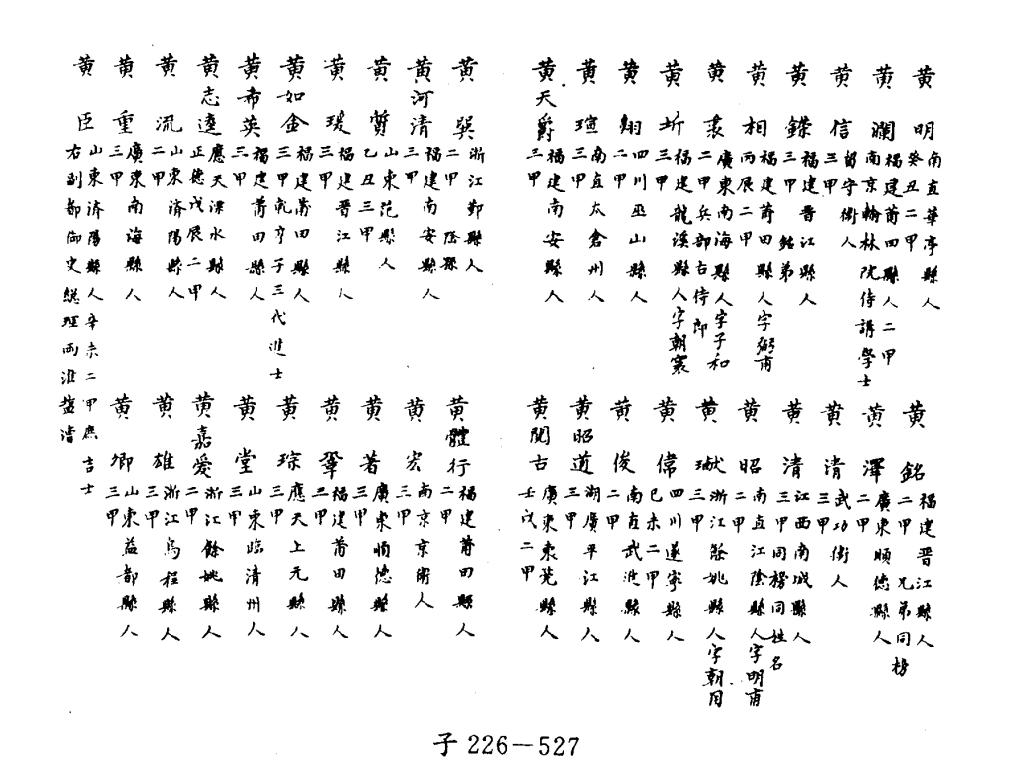 黃明
南直華亭縣人
癸丑二甲
黃瀾
福建莆田縣人二甲
南京翰林院侍講學士
黃信
留守衛人
三甲
黃鏷
福建晉江縣人
三甲 銘弟
黃相
福建莆田縣人字弼甫
丙辰二甲
黃衷
廣東南海縣人字子和
二甲兵部右侍郎
黃圻
福建龍溪縣人字朝寰
三甲
黃翔
四川巫山縣人
二甲
黃瑄
南直太倉州人
三甲
黃天爵
福建南安縣人
三甲
黃銘
福建晉江縣人
二甲 兄弟同榜
黃澤
廣東順德縣人
二甲
黃清
武功衛人
三甲
黃清
江西南城縣人
三甲同榜同姓名
黃昭
南直江陰縣人字明甫
二甲
黃獻
浙江餘姚縣人字朝用
三甲
黃偉
四川遂寧縣人
己未二甲
黃俊
南直武進縣人
二甲
黃昭道
湖廣平江縣人
三甲
黃閱古
廣東東莞縣人
壬戌二甲
黃㒷
浙江鄞縣人
二甲
黃河清
福建南安縣人
二甲
黃質
山東范縣人
乙丑三甲
黃瑗
福建晉江縣人
三甲
黃如金
福建莆田縣人
三甲乾亨子三代進士
黃希英
福建莆田縣人
三甲
黃志達
應天溧水縣人
正德戊辰二甲
黃流
山東濟陽縣人
二甲
黃重
廣東南海縣人
三甲
黃臣
山東濟陽縣人辛未二甲庶吉士
右副都御史總理兩淮鹽漕
黃體行
福建莆田縣人
二甲
黃宏
南京京衛人
三甲
黃著
廣東順德縣人
三甲
黃鞏
福建莆田縣人
二甲
黃琮
應天上元縣人
三甲
黃堂
山東臨清州人
三甲
黃嘉愛
浙江餘姚縣人
二甲
黃雄
浙江烏程縣人
三甲
黃卿
山東益都縣人
三甲
子 226—527